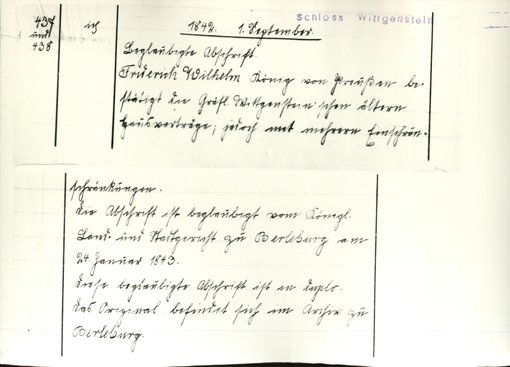 437 und 438
ich
1842. 1. September.
Schloss Wittgenstein
Beglaubigte Abschrift
Friderich Wilhelm König von Preußen be-
stätigt die Gräfl. Wittgenstein'schen ältern
Hausverträge; jedoch mit mehrern Einschrän-
schränkungen.
Die Abschrift ist beglaubigt vom Königl.
Land- und Stadtgericht zu Berleburg am
24. Januar 1843.
Diese beglaubigte Abschrift ist in duplo.
Das Original befindet sich im Archiv zu
Berleburg.